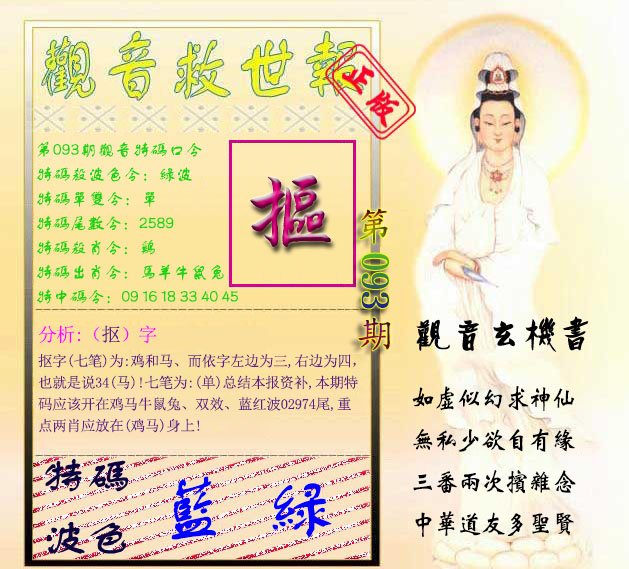 觀音救世報
正版
第093期觀音特碼口令
特碼殺波色令：綠波
特碼單雙令：單
特碼尾數令：2589
特碼殺肖令：鷄
特碼出肖令：馬羊牛鼠兔
特中碼令：09 16 18 33 40 45
摳
第093期
分析:（抠）字
抠字(七笔)为:鸡和马、而依字左边为三,右边为四,
也就是说34(马)!七笔为:(单)总结本报资补,本期特
码应该开在鸡马牛鼠兔、双效、蓝红波02974尾,重
点两肖应放在(鸡马)身上!
特碼
波色
藍 綠
觀音玄機書
如虛似幻求神仙
無私少欲自有緣
三番兩次擯雜念
中華道友多聖賢